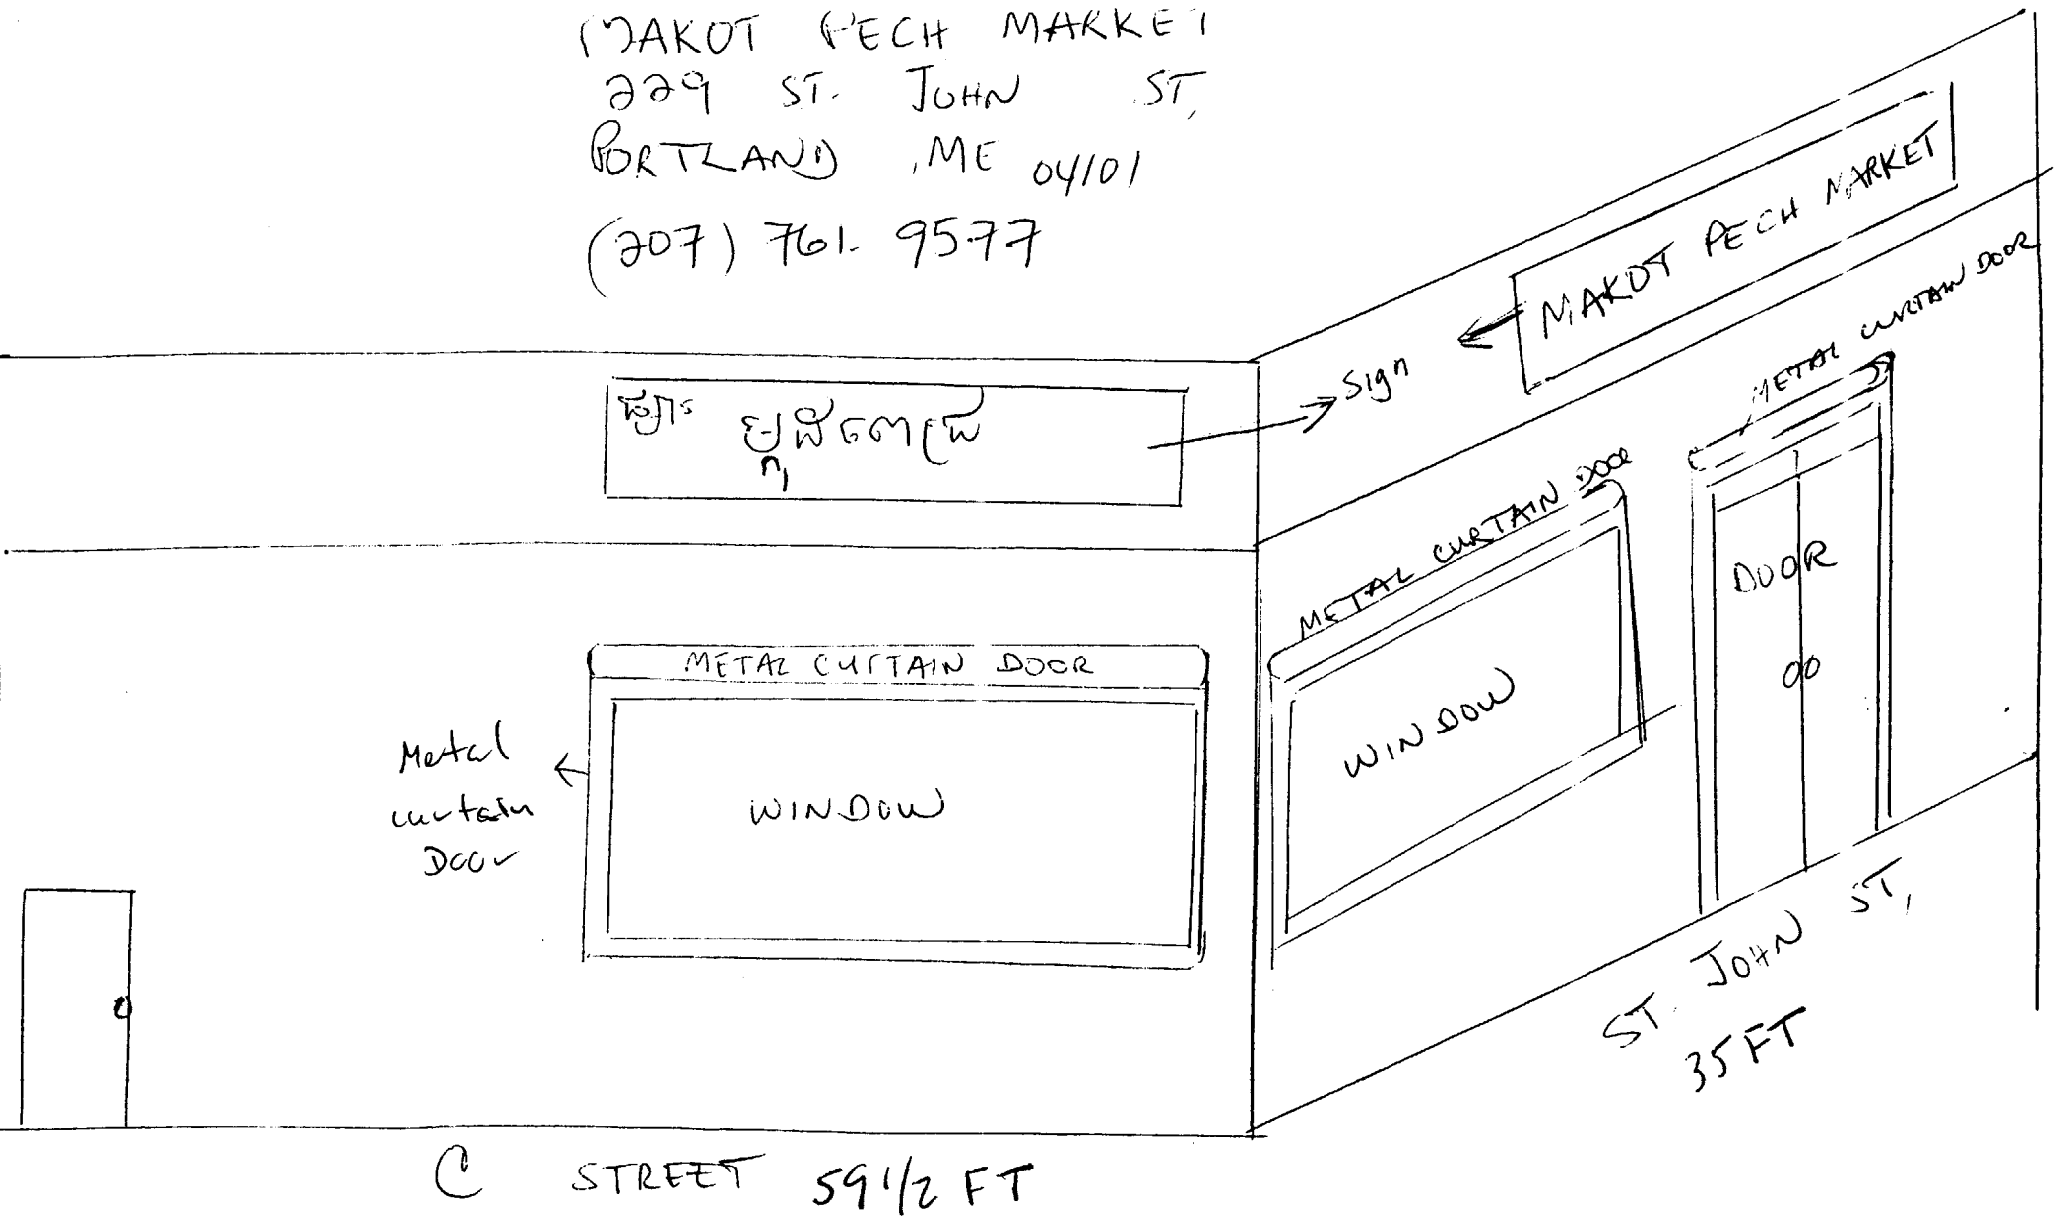 MAKOT PECH MARKET
229 ST. JOHN ST,
PORTLAND, ME 04101
(207) 761-9577
MAKOT PECH MARKET
Sign
ផ្សារ មកុដពេជ្រ
METAL CURTAIN DOOR
METAL CURTAIN DOOR
DOOR
METAL CURTAIN DOOR
WINDOW
Metal
curtain
Door
WINDOW
ST. JOHN ST,
35 FT
C STREET 59 1/2 FT